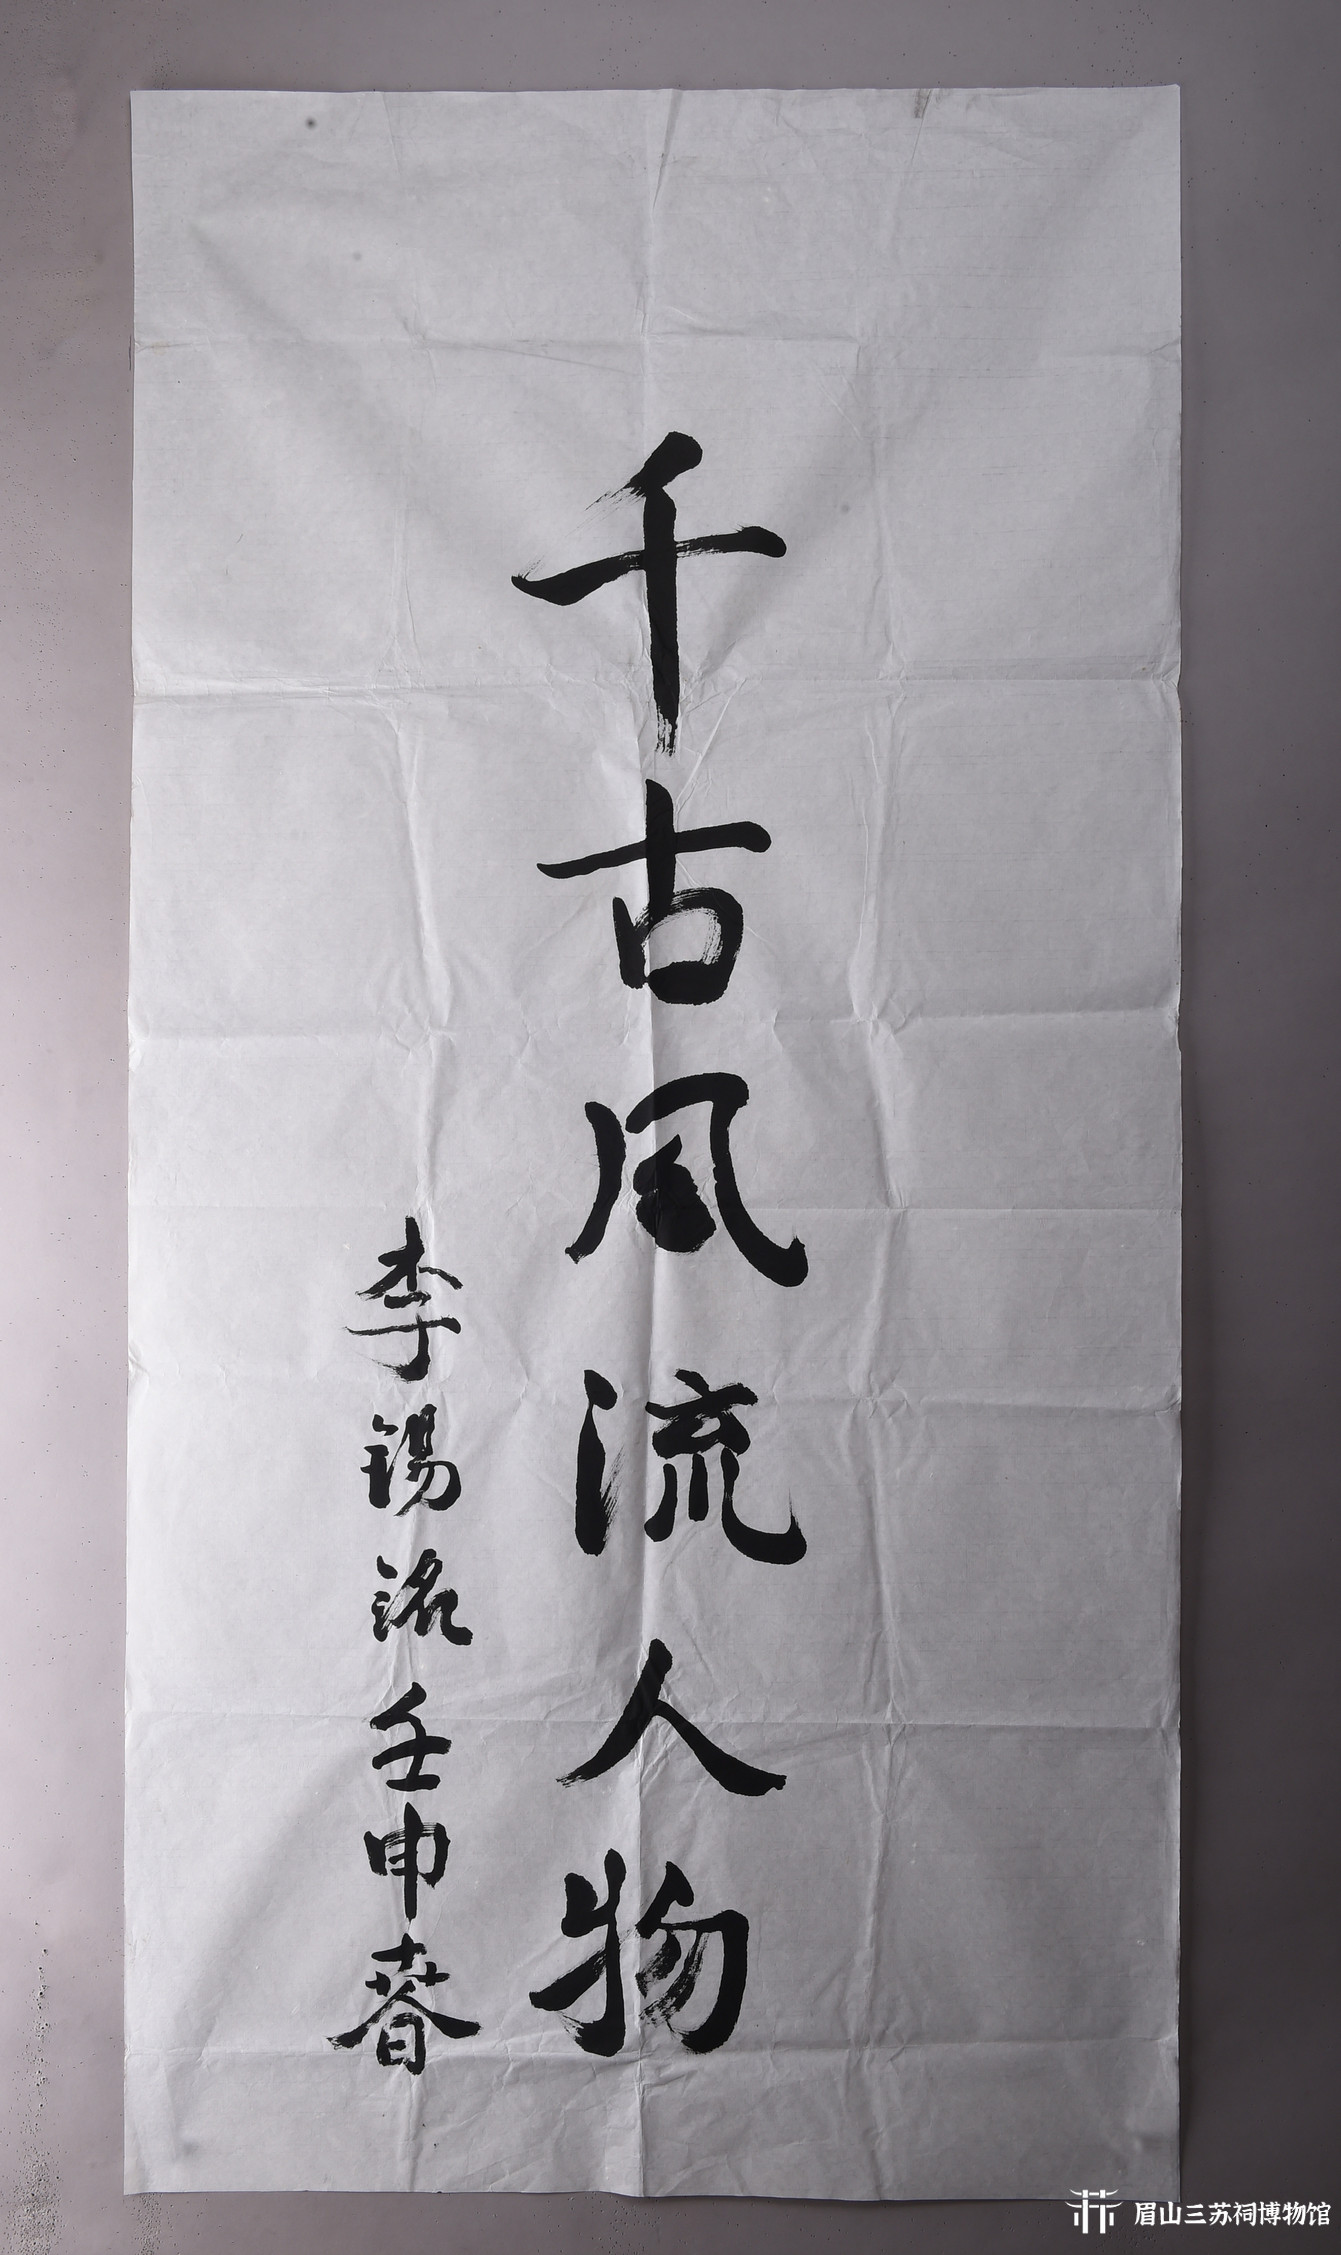 千古风流人物
李锡铭壬申春
眉山三苏祠博物馆